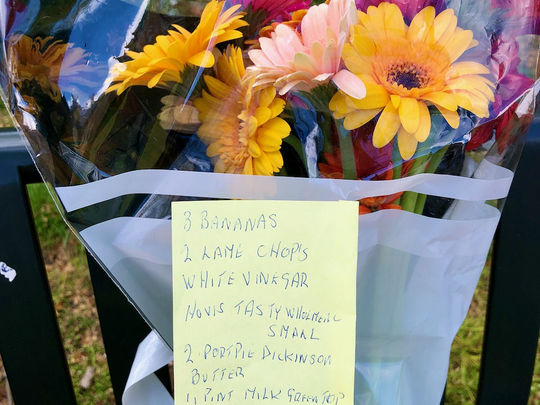 3 BANANAS
2 LAME CHOP'S
WHITE VINEGAR
HOVIS TASTY WHOLEMEAL
SMALL
2 PORTPIE DICKINSON
BUTTER
1 PINT MILK GREEN TOP